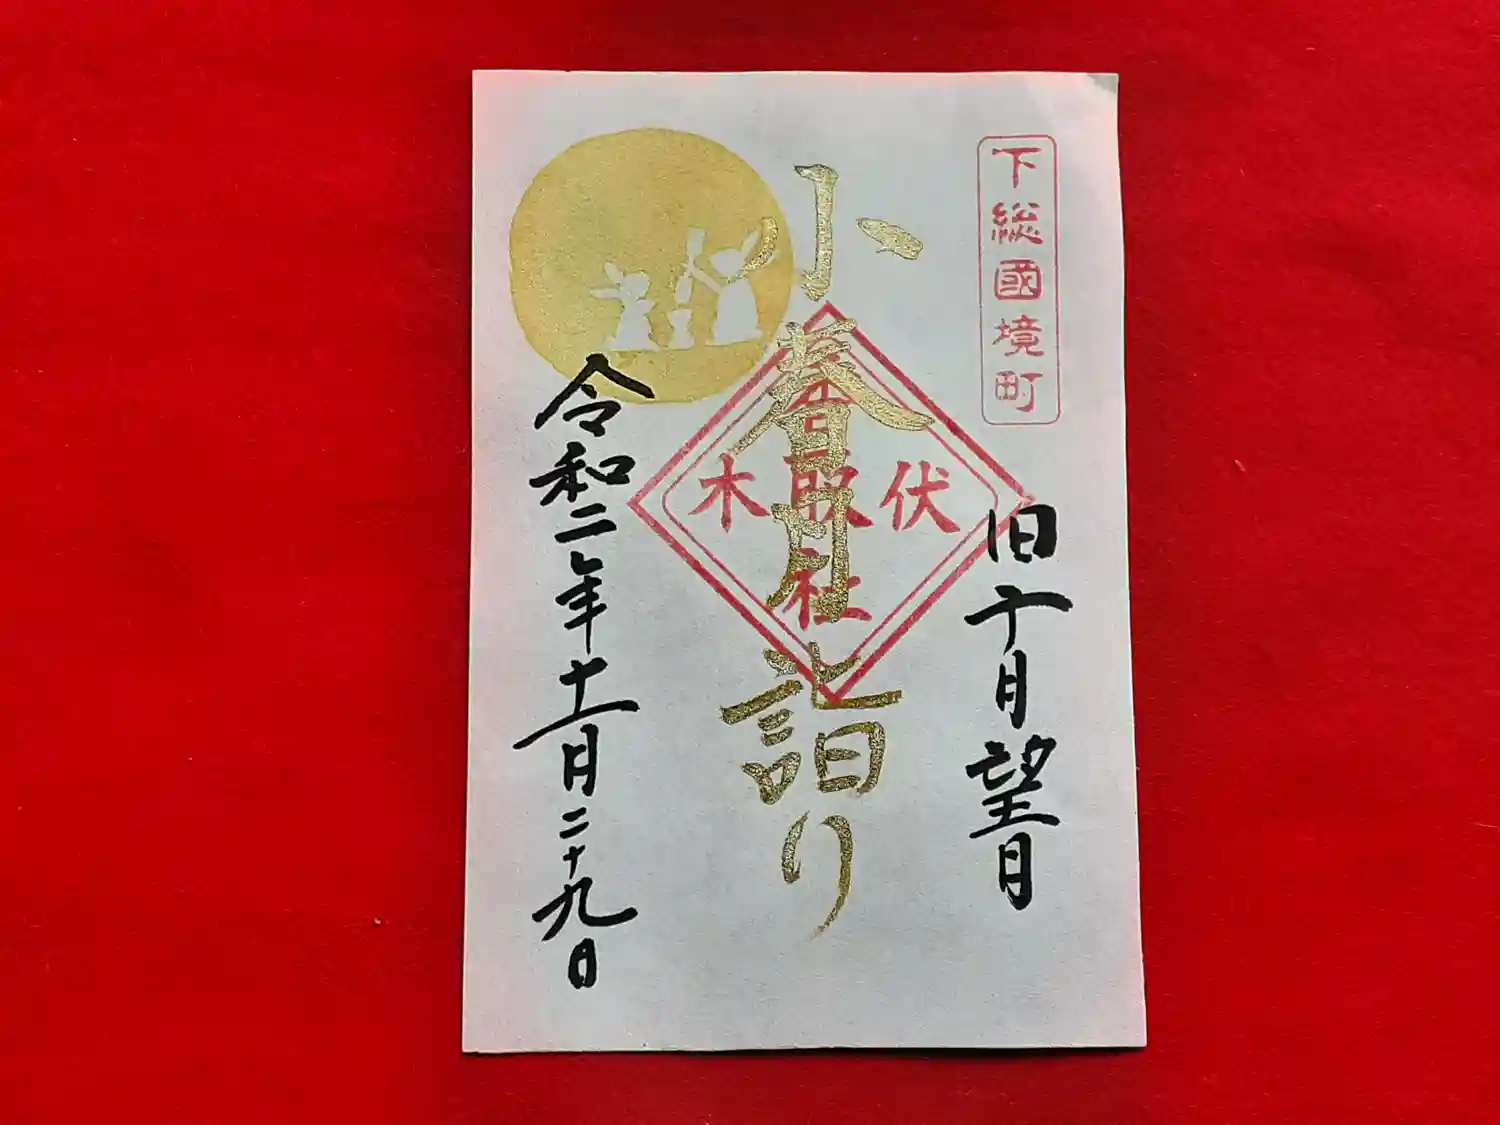 下総國境町
旧十月望日
小春月詣り
伏木
香取社
令和二年十一月二十九日